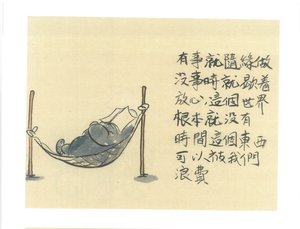 有事就隨緣做
没事時就歇着
放心，這個世界
根本就没有
時間這個東西
可以被我們
浪費